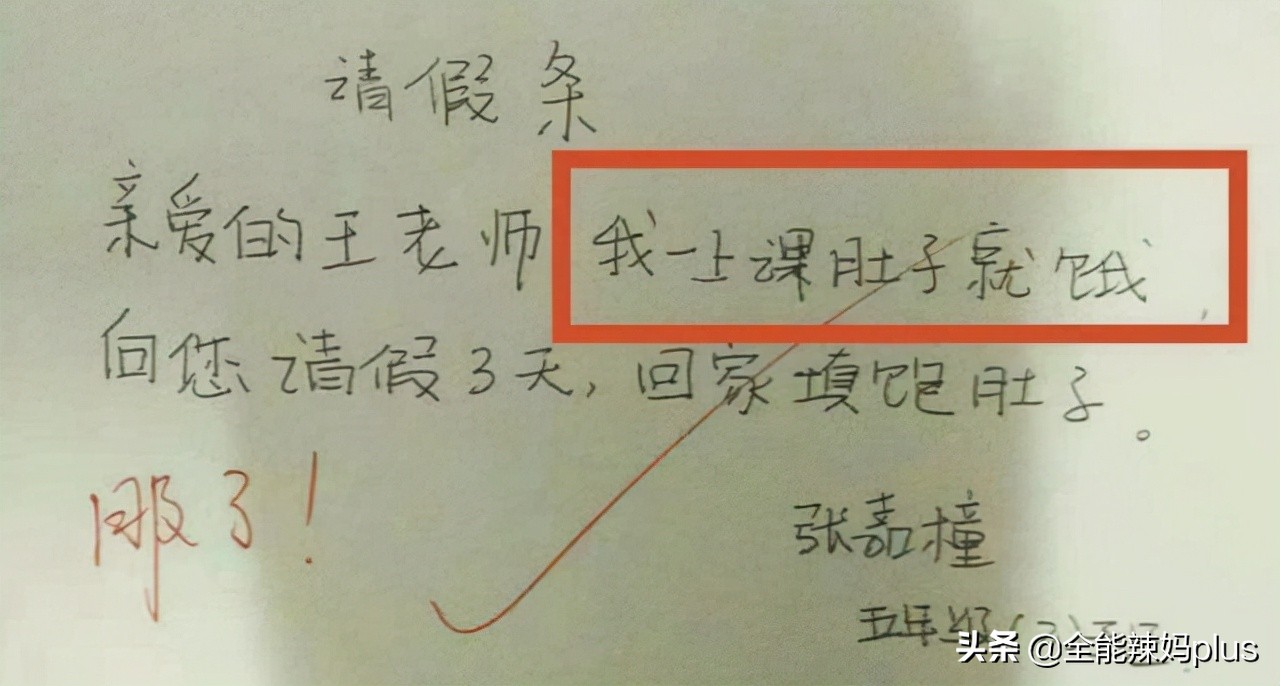 请假条
亲爱的王老师 我一上课肚子就饿,
向您请假3天,回家填饱肚子。
服了!
张嘉橦
五年级
头条 @全能辣妈plus